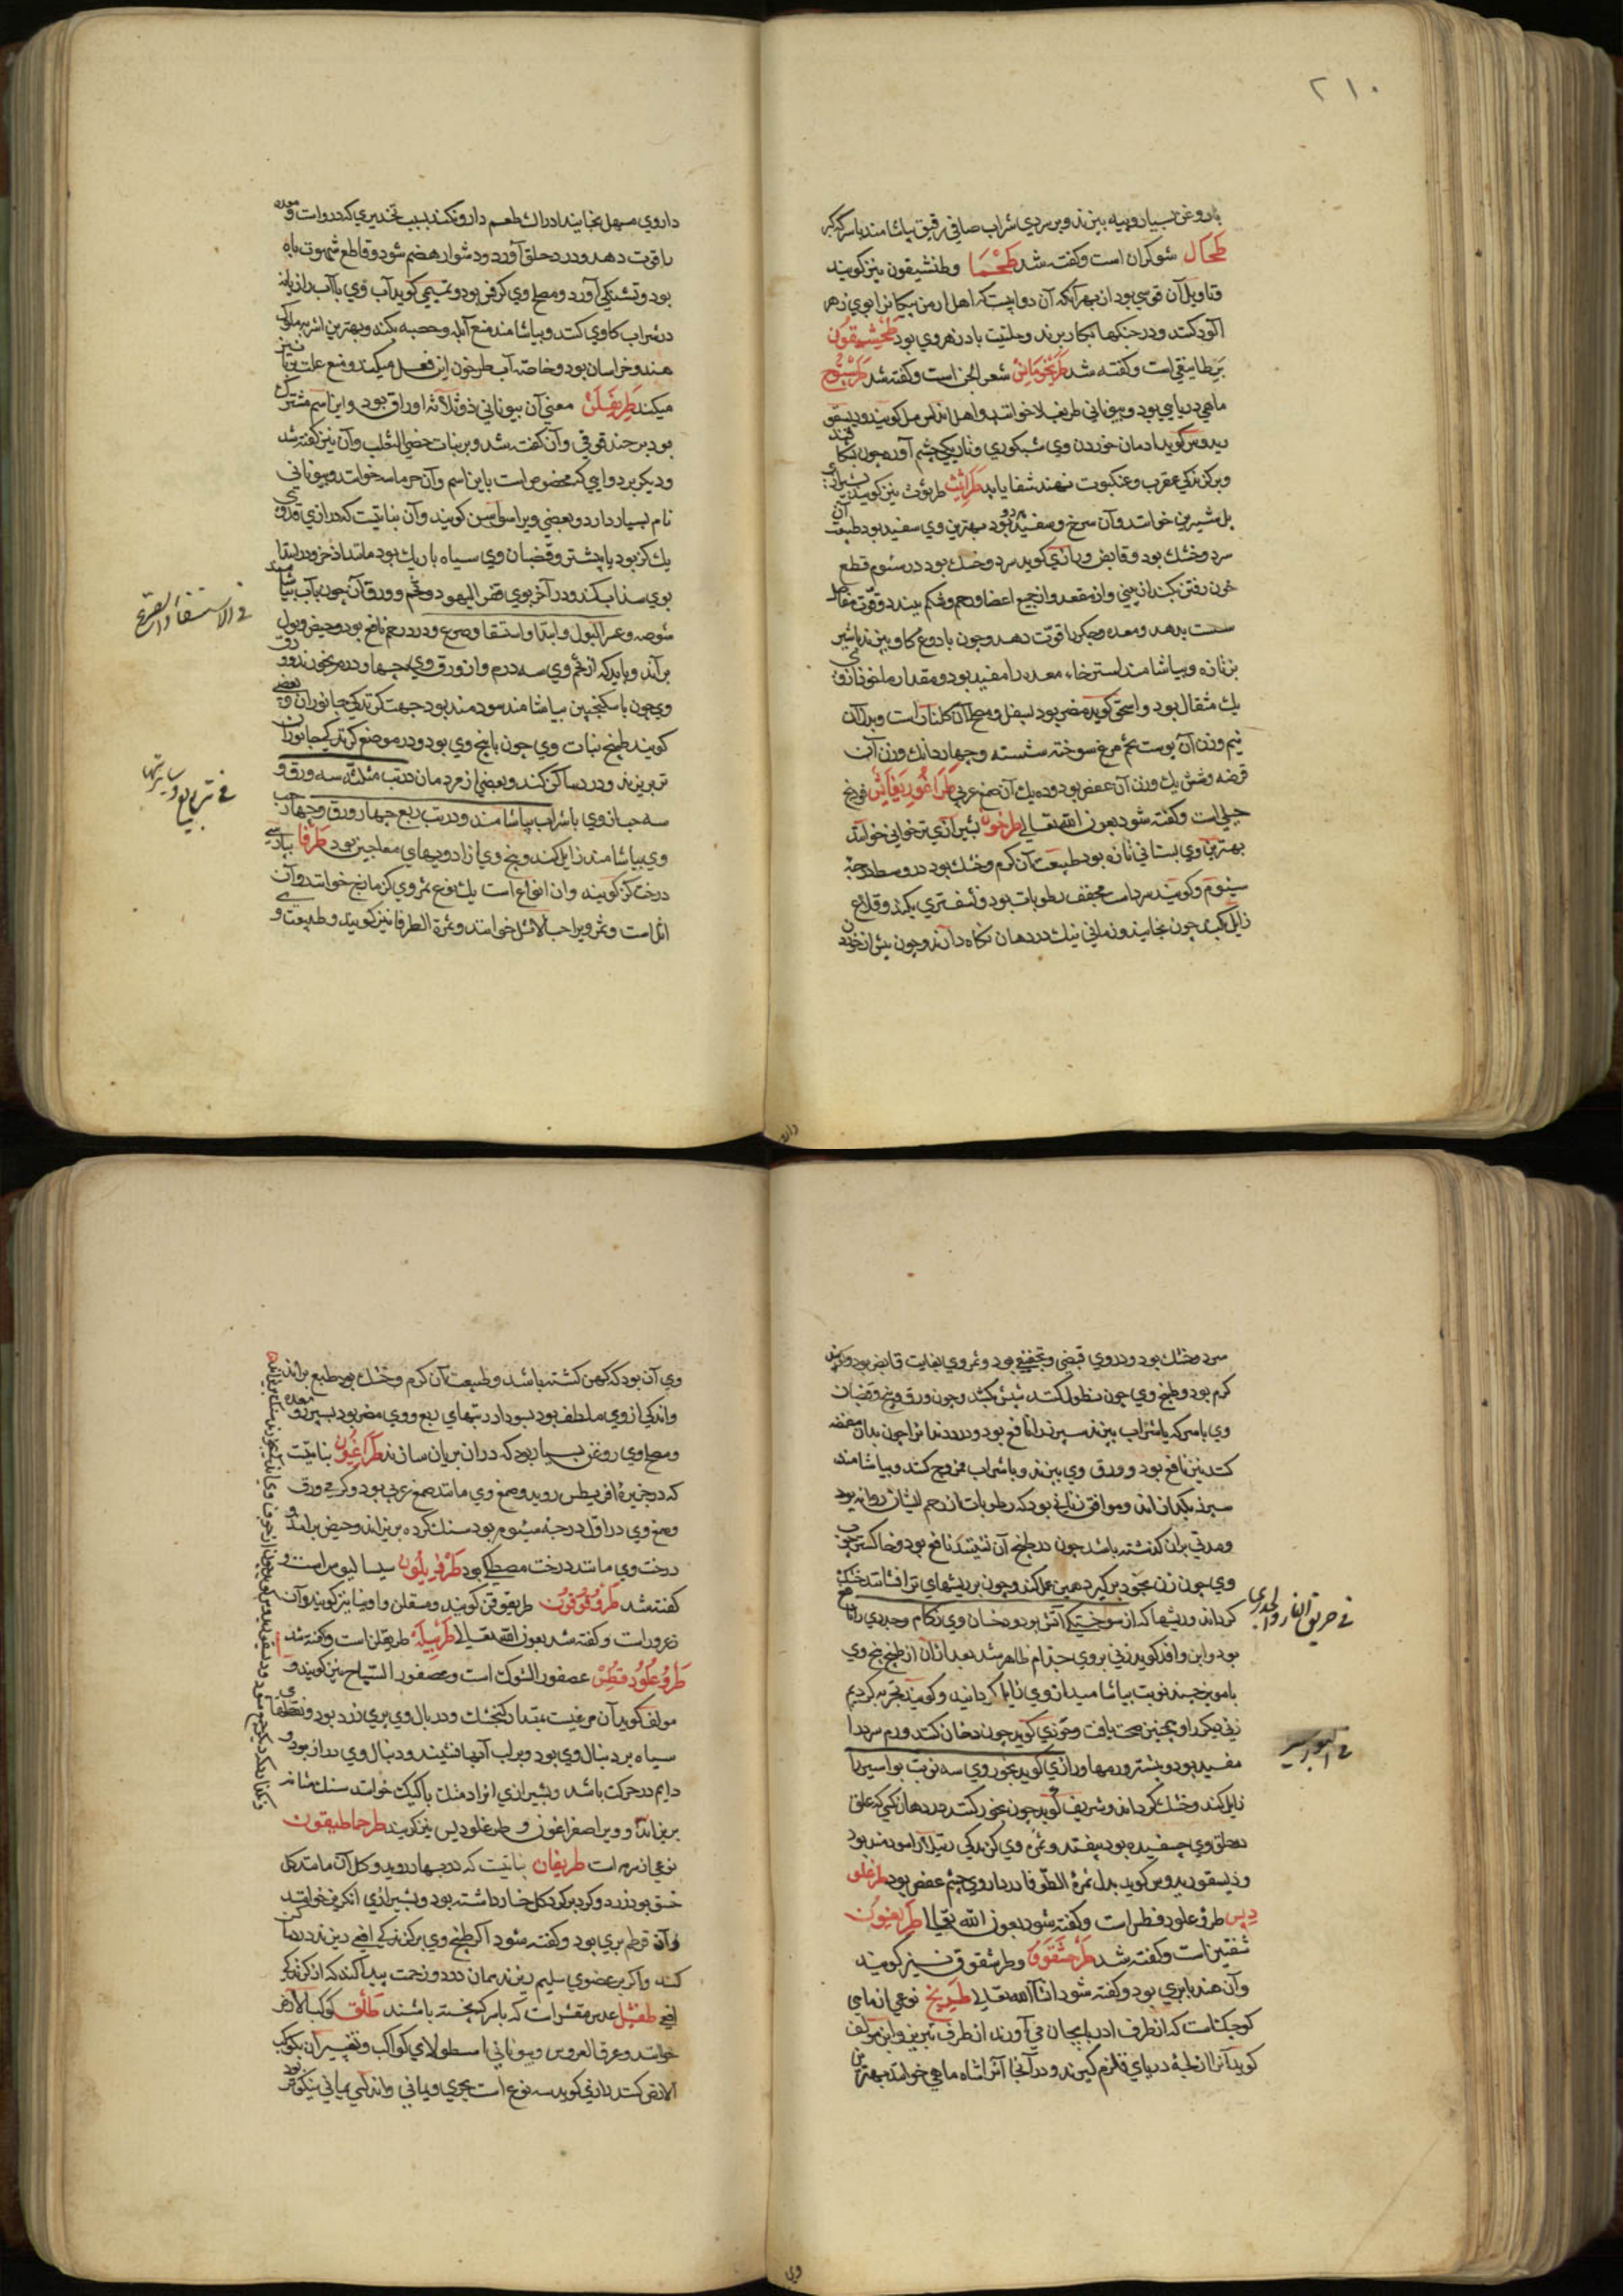 ۲۱۰
با روغن بسیار و پیه بپزند و بر سردی شراب صافی رقیق بیاشامند یا سرکه
طحال شوکران است و کفته شد طخما و طنشیقون نیز کویند
و تاویل آن قوسی بود از بهر آنکه آن دواییست که اهل ارمن پیکانرا بوی زهر
آلود کنند و در جنکها بکار برند و حلتیت بادزهر وی بود طخشیقون
بریطانیقی است و کفته شد طرنجومانس شعر الجن است و کفته شد طرستوج
ماهی دریایی بود و بیونانی طریغلا خوانند و اهل اندلس مل کویند و دیسقو
ریدوس کوید ادمان خوردن وی شبکوری و تاریکی چشم آورد چون
و بر کزندکی عقرب و عنکبوت نهند شفا یابد طراثیث طرثوث نیز کویند
بل شیرین خوانند و آن سرخ و سفید بود و بهترین وی سفید بود طبیعت آن
سرد و خشك بود و قابض و رازی کوید سرد و خشك بود در سئوم قطع
خون رفتن بکند از بینی و از مقعد و از جمیع اعضا و رحم و شکم ببندد و قوت مفاصل
سست بدهد و معده و جکر را قوت دهد و چون با دوغ کاو بپزند یا شیر
بز تازه و بیاشامند استرخاء معده را مفید بود و مقدار ماخوذ از وی
یك مثقال بود و اسحق کوید مضر بود بسفل و مصلح آن کلنار است و بدل آن
نیم وزن آن پوست تخم مرغ سوخته شسته و چهار دانك وزن آن
قرضه و شش یك وزن آن عفص بود و ده یك آن صمغ عربی طراغوریغانس فودنج
جبلی است و کفته شود بعون الله تعالی طرخون بشیرازی ترخوانی خوانند
بهترین وی بستانی تازه بود طبیعت آن کرم و خشك بود در وسط درجه
سئوم و کویند سرد است مجفف رطوبات بود و نشف تری بکند و قلاع
زایل کند چون بخایند و زمانی نیك در دهان نکاه دارند و چون پیش از خوردن
داروی مسهل بخایند ادراك طعم دارو نکند بسبب تخدیری که در وی است و معده
را قوت دهد و درد حلق آورد و دشوار هضم شود و قاطع شهوت باه
بود و تشنکی آورد و مصلح وی کرفس بود و تمیمی کوید آب وی با آب رازیانه
در شراب کاوی کنند و بیاشامند منع آبله و حصبه بکند و بهترین اشربه ملوك
هند و خراسان بود و خاصه آب طرخون این فعل میکند و منع علت وبا نیز
میکند طریفلن معنی آن بیونانی ذو ثلاثه اوراق بود و این اسم مشترك
بود بر حندقوقی و آن کفته شد و بر نبات خصی الثعلب و آن نیز کفته شد
و دیکر بر دوایی که مخصوص است باین اسم و آن حومانه خوانند و بیونانی
نام بسیار دارد و بعضی ویرا کویند و آن نباتیست که درازی قد وی
یك کز بود یا بیشتر و قضبان وی سیاه باریك بود مانند اذخر و در ابتدا
بوی سذاب کند و در آخر بوی قفر الیهود و تخم و ورق آن چون بآب بیاشامند
شوصه و عسر البول و ابتداء استسقا و صرع و درد رحم نافع بود و حیض و بول
براند و باید که از تخم وی سه درم و از ورق وی چهار درم بخورند و ورق
وی چون با سکنجبین بیاشامند سودمند بود جهت کزندکی جانوران و بعضی
کویند طبخ نبات وی چون با بیخ وی بود و در موضع کزندکی جانوران
بریزند و درد ساکن کند و بعضی از مردمان در تب مثلثه سه ورق و
سه حب از وی با شراب بیاشامند و در تب ربع چهار ورق و چهار حب
وی بیاشامند زایل کند و بیخ وی از ادویهای معاجین بود طرفا بپارسی
درخت کز کویند و آن انواع است یك نوع ثمر وی کزمازج خوانند و آن
اثل است و ثمر ویرا حب الاثل خوانند و ثمرة الطرفا نیز کویند و طبیعت وی
فی الاستسقاء و الصرع
فی تب ربع و سایر تبها
سرد و خشك بود و در وی قبضی و تجفیفی بود و ثمر وی بغایت قابض بود و کویند
کرم بود و طبخ وی چون نطول کنند شپش بکشد و چون ورق و بیخ و قضبان
وی با سرکه یا شراب بپزند سپرز را نافع بود و درد دندانرا چون بدان مضمضه
کنند نیز نافع بود و ورق وی بپزند و با شراب ممزوج کنند و بیاشامند
سپرز بکدازاند و موافق زنانی بود که رطوبات از رحم ایشان روانه بود
و مدتی بران کذشته باشد چون در طبخ آن نشینند نافع بود و خاکستر چوب
وی چون زن بخود برکیرد همین عمل کند و چون بر ریشهای تر افشانند خشك
کرداند و ریشها که از سوختکی آتش بود و دخان وی زکام و جدری را نافع
بود و ابن وافد کوید زنی بروی جذام ظاهر شد بعد از آن از طبخ بیخ وی
با مویز چند نوبت بیاشامید از وی زایل کردانید و کویند تجربه کردیم
زنی دیکر را و همچنین صحت یافت و غافقی کوید چون دخان کنند ورم سر را
مفید بود و بیشتر ورمها و رازی کوید بخور وی سه نوبت بواسیر را
زایل کند و خشك کرداند و شریف کوید چون بخور کنند در دهان کسی که علق
در حلق وی چسفیده بود بیفتد و ثمر وی کزندکی رتیلا را سودمند بود
و دیسقوریدوس کوید بدل ثمرة الطرفا در داروی چشم عفص بود طراغلو
دیس طروغلودقطس است و کفته شود بعون الله تعالی طریفیون
شقین است و کفته شد طرخشقوق و طرشقوق نیز کویند
و آن هندبا بری بود و کفته شود ان شاء الله تعالی طریخ نوعی از ماهی
کوچکست که از طرف ادربایجان می آورند از طرف تبریز و ابن مولف
کوید آنرا از لجهٔ دریای قلزم کیرند و در آنجا آنرا شاه ماهی خوانند بهترین
فی حریق النار و الجدری
فی البواسیر
وی آن بود که کهن کشته باشد و طبیعت آن کرم و خشك بود طبع براند
و اندکی از وی ملطف بود بسودا در تبهای ربع و وی مضر بود بسپرز و معده
و مصلح وی روغن بسیار بود که در آن بریان سازند طراغیون نباتیست
که در جزیرهٔ اقریطس روید و صمغ وی مانند صمغ عربی بود و کرمی ورق
و صمغ وی در اول درجهٔ سیئوم بود سنك کرده بریزاند و حیض براند و
درخت وی مانند درخت مصطکی بود طرفیلون سیسالیوس است و
کفته شد طرقوقون طریقوقن کویند و مشقلن و اونیا نیز کویند و آن
زعرور است و کفته شد بعون الله تعالی طرنبیله طریقلن است و کفته شد
طروغلودقطس عصفور الشوك است و عصفور السیاح نیز کویند و
مولف کوید آن مرغیست بمقدار کنجشك و در بال وی پری زرد بود و نقطهای
سیاه بر دنبال وی بود و بر لب آبها نشیند و دنبال وی دراز بود و
دایم در حرکت باشد و بشیرازی انرا دمشك یا کیك خوانند سنك مثانه
بریزاند و ویرا صفراغون و طرغلودیس نیز کویند طرحماطیقون
نوعی از سرمه است طریفان نباتیست که در بهار روید و کل آن مانند کل
خسق بود زرد و کرد بر کرد کل خار داشته بود و بشیرازی انکرفی خوانند
و آن قرطم بری بود و کفته شود اکر طبخ وی بر کزندکی افعی ریزند درد ساکن
کند و اکر بر عضوی سلیم ریزند همان درد و زحمت پیدا کند که از کزندکی
افعی طفشیل عدس مقشر است که با سرکه پخته باشند طلق کوکب الارض
خوانند و عرق العروس و بیونانی اسطولا ای کواکب و تفسیر آن بکوکب
الارض کنند رازی کوید سه نوع است بحری و یمانی و اندلسی یمانی نیکوتر بود